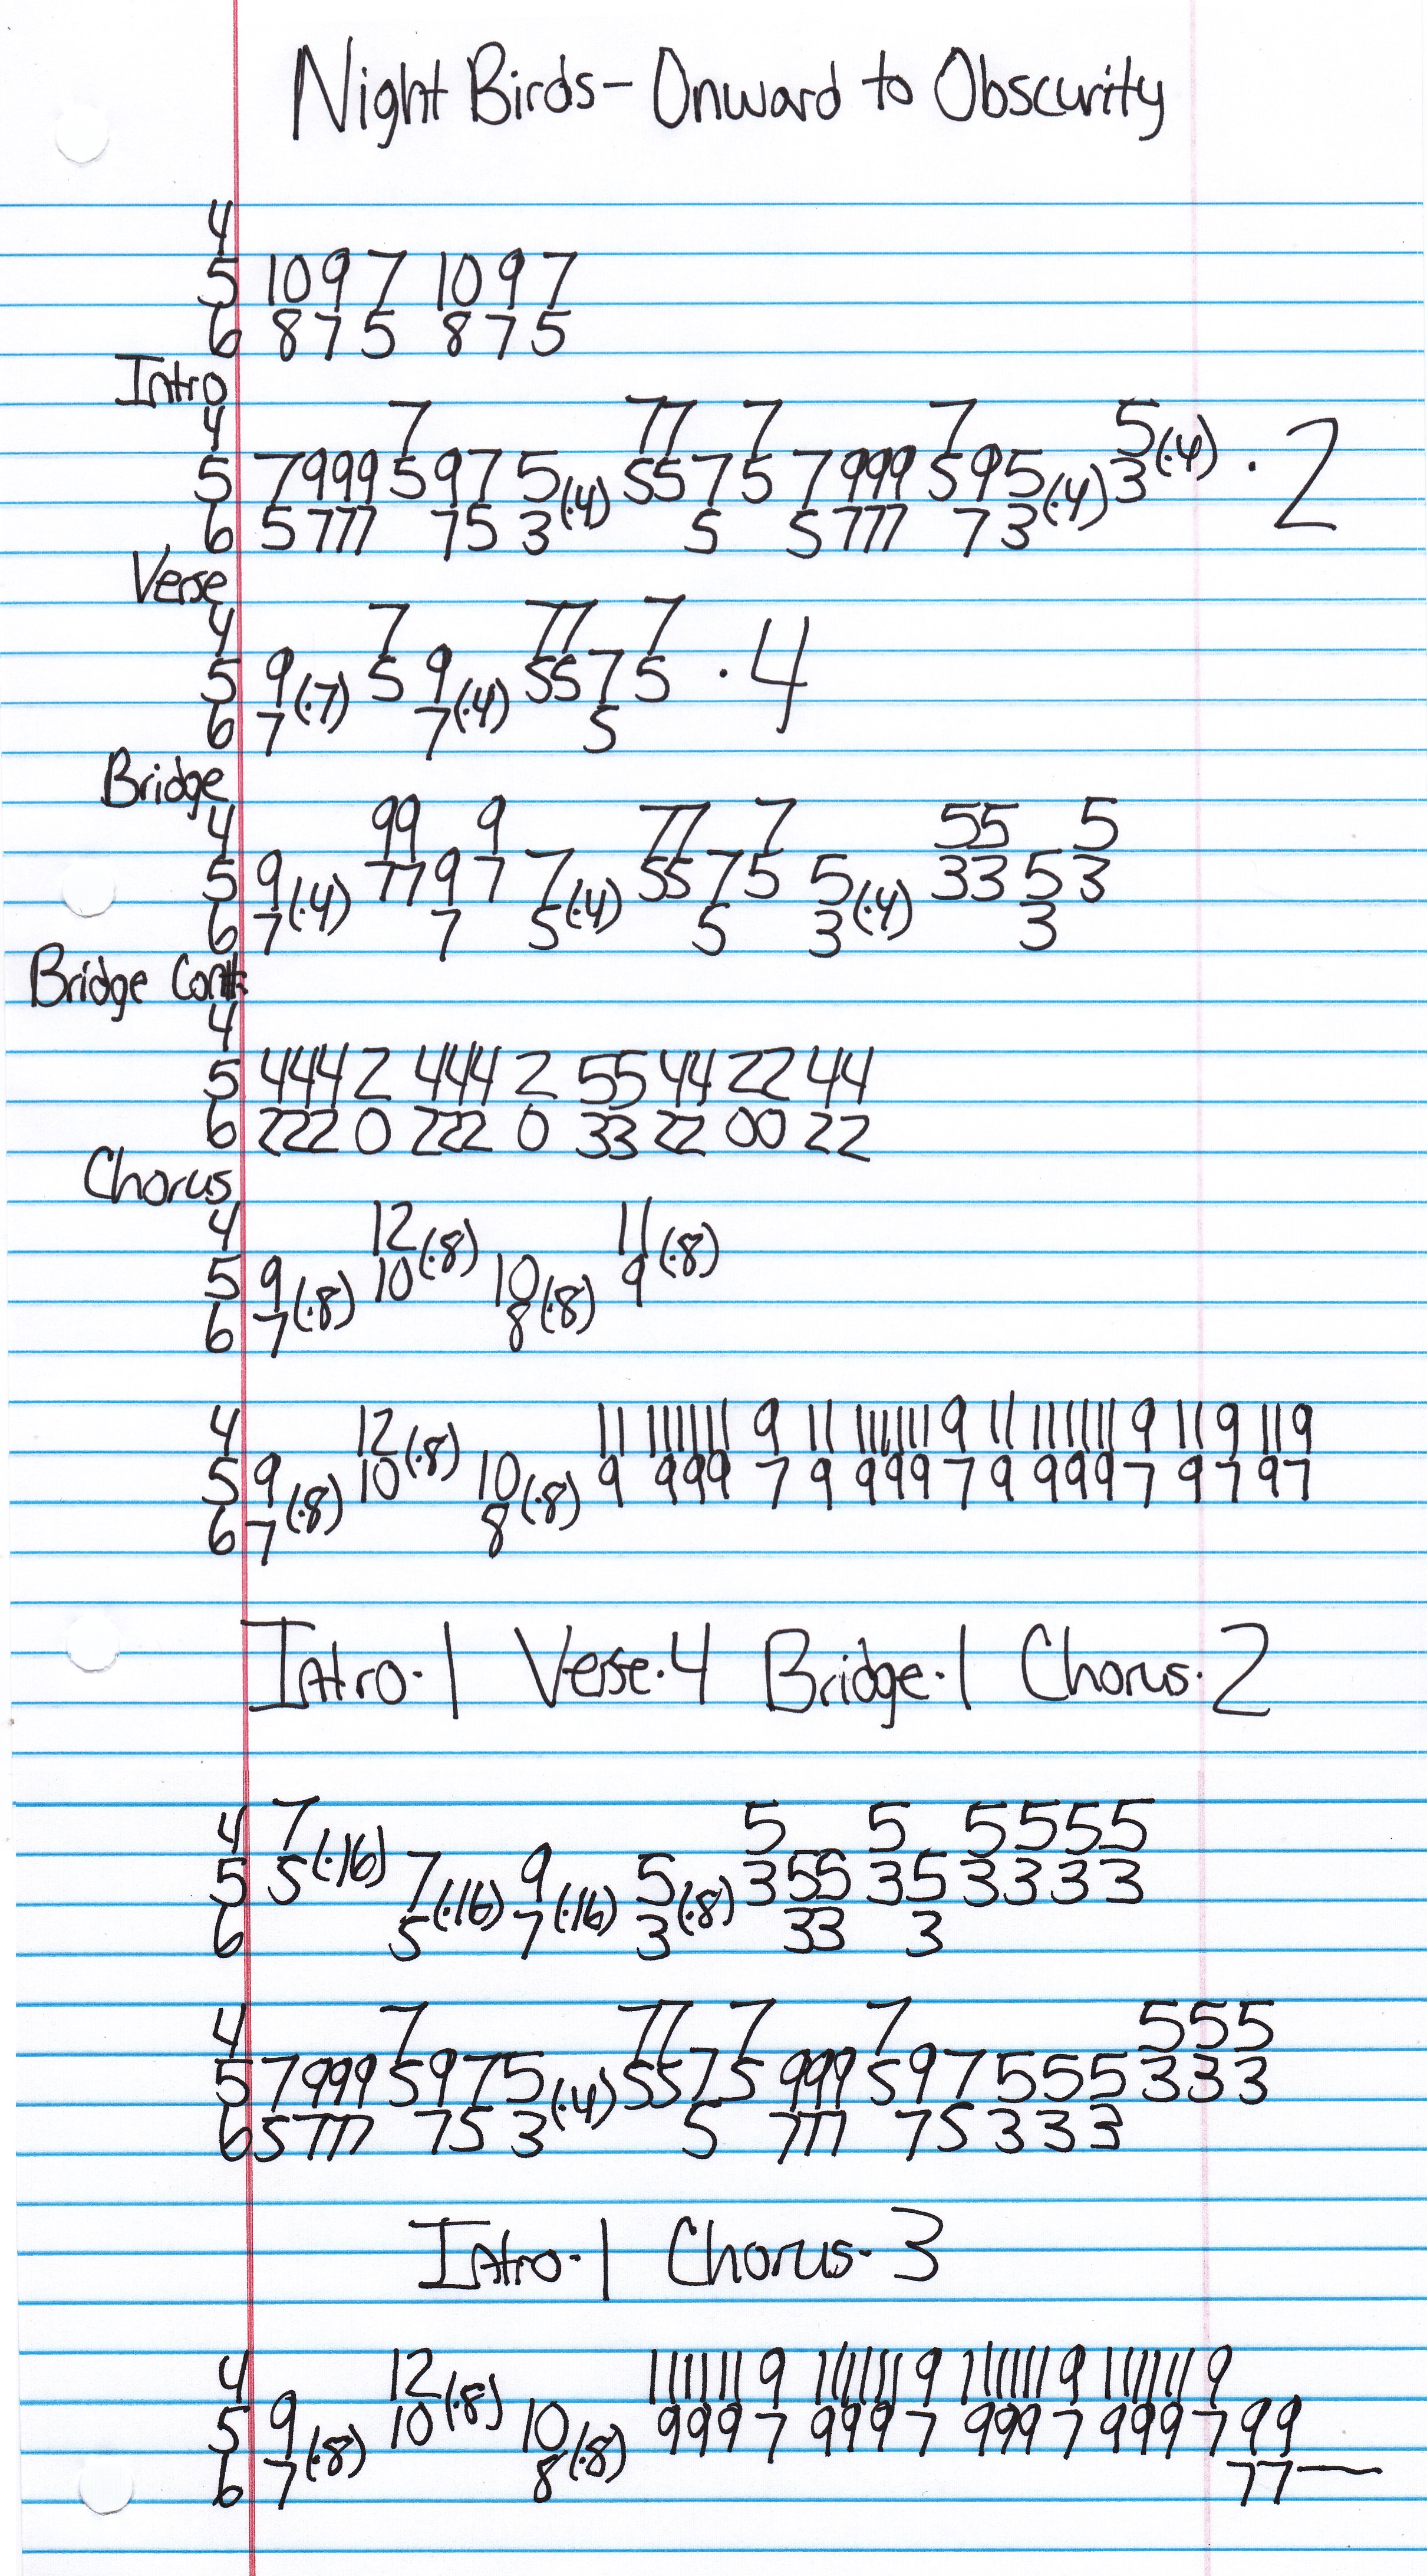 Night Birds - Onward to Obscurity
4
5 10 9 7 10 9 7
6 8 7 5 8 7 5
Intro
4 7 77 7 7 5(·4) ·2
5 7999597 5(·4) 5575 7999 595(·4) 3
6 5777 75 3 5 5777 73
Verse
4 7 77 7 ·4
5 9(·7) 5 9(·4) 5575
6 7 7 5
Bridge
4 99 9 77 7 55 5
5 9(·4) 7797 7(·4) 5575 5(·4) 3353
6 7 7 5 5 3 3
Bridge Cont.
4
5 444 2 444 2 55 44 22 44
6 222 0 222 0 33 22 00 22
Chorus
4 12(·8) 11(·8)
5 9(·8) 10 10(·8) 9
6 7 8
4 12(·8) 11 111111 9 11 111111 9 11 111111 9 11 9 11 9
5 9(·8) 10 10(·8) 9 999 7 9 999 7 9 999 7 9 7 9 7
6 7 8
Intro·1 Verse·4 Bridge·1 Chorus·2
4 7(·16) 5 5 5555
5 5 7(·16) 9(·16) 5(·8) 355 35 3333
6 5 7 3 33 3
4 7 77 7 7 555
5 79995975(·4) 5575 999 597 555 333
6 5777 75 3 5 777 75333
Intro·1 Chorus·3
4 12(·8) 111111 9 111111 9 111111 9 111111 9
5 9(·8) 10 10(·8) 999 7 999 7 999 7 999 7 99
6 7 8 77—